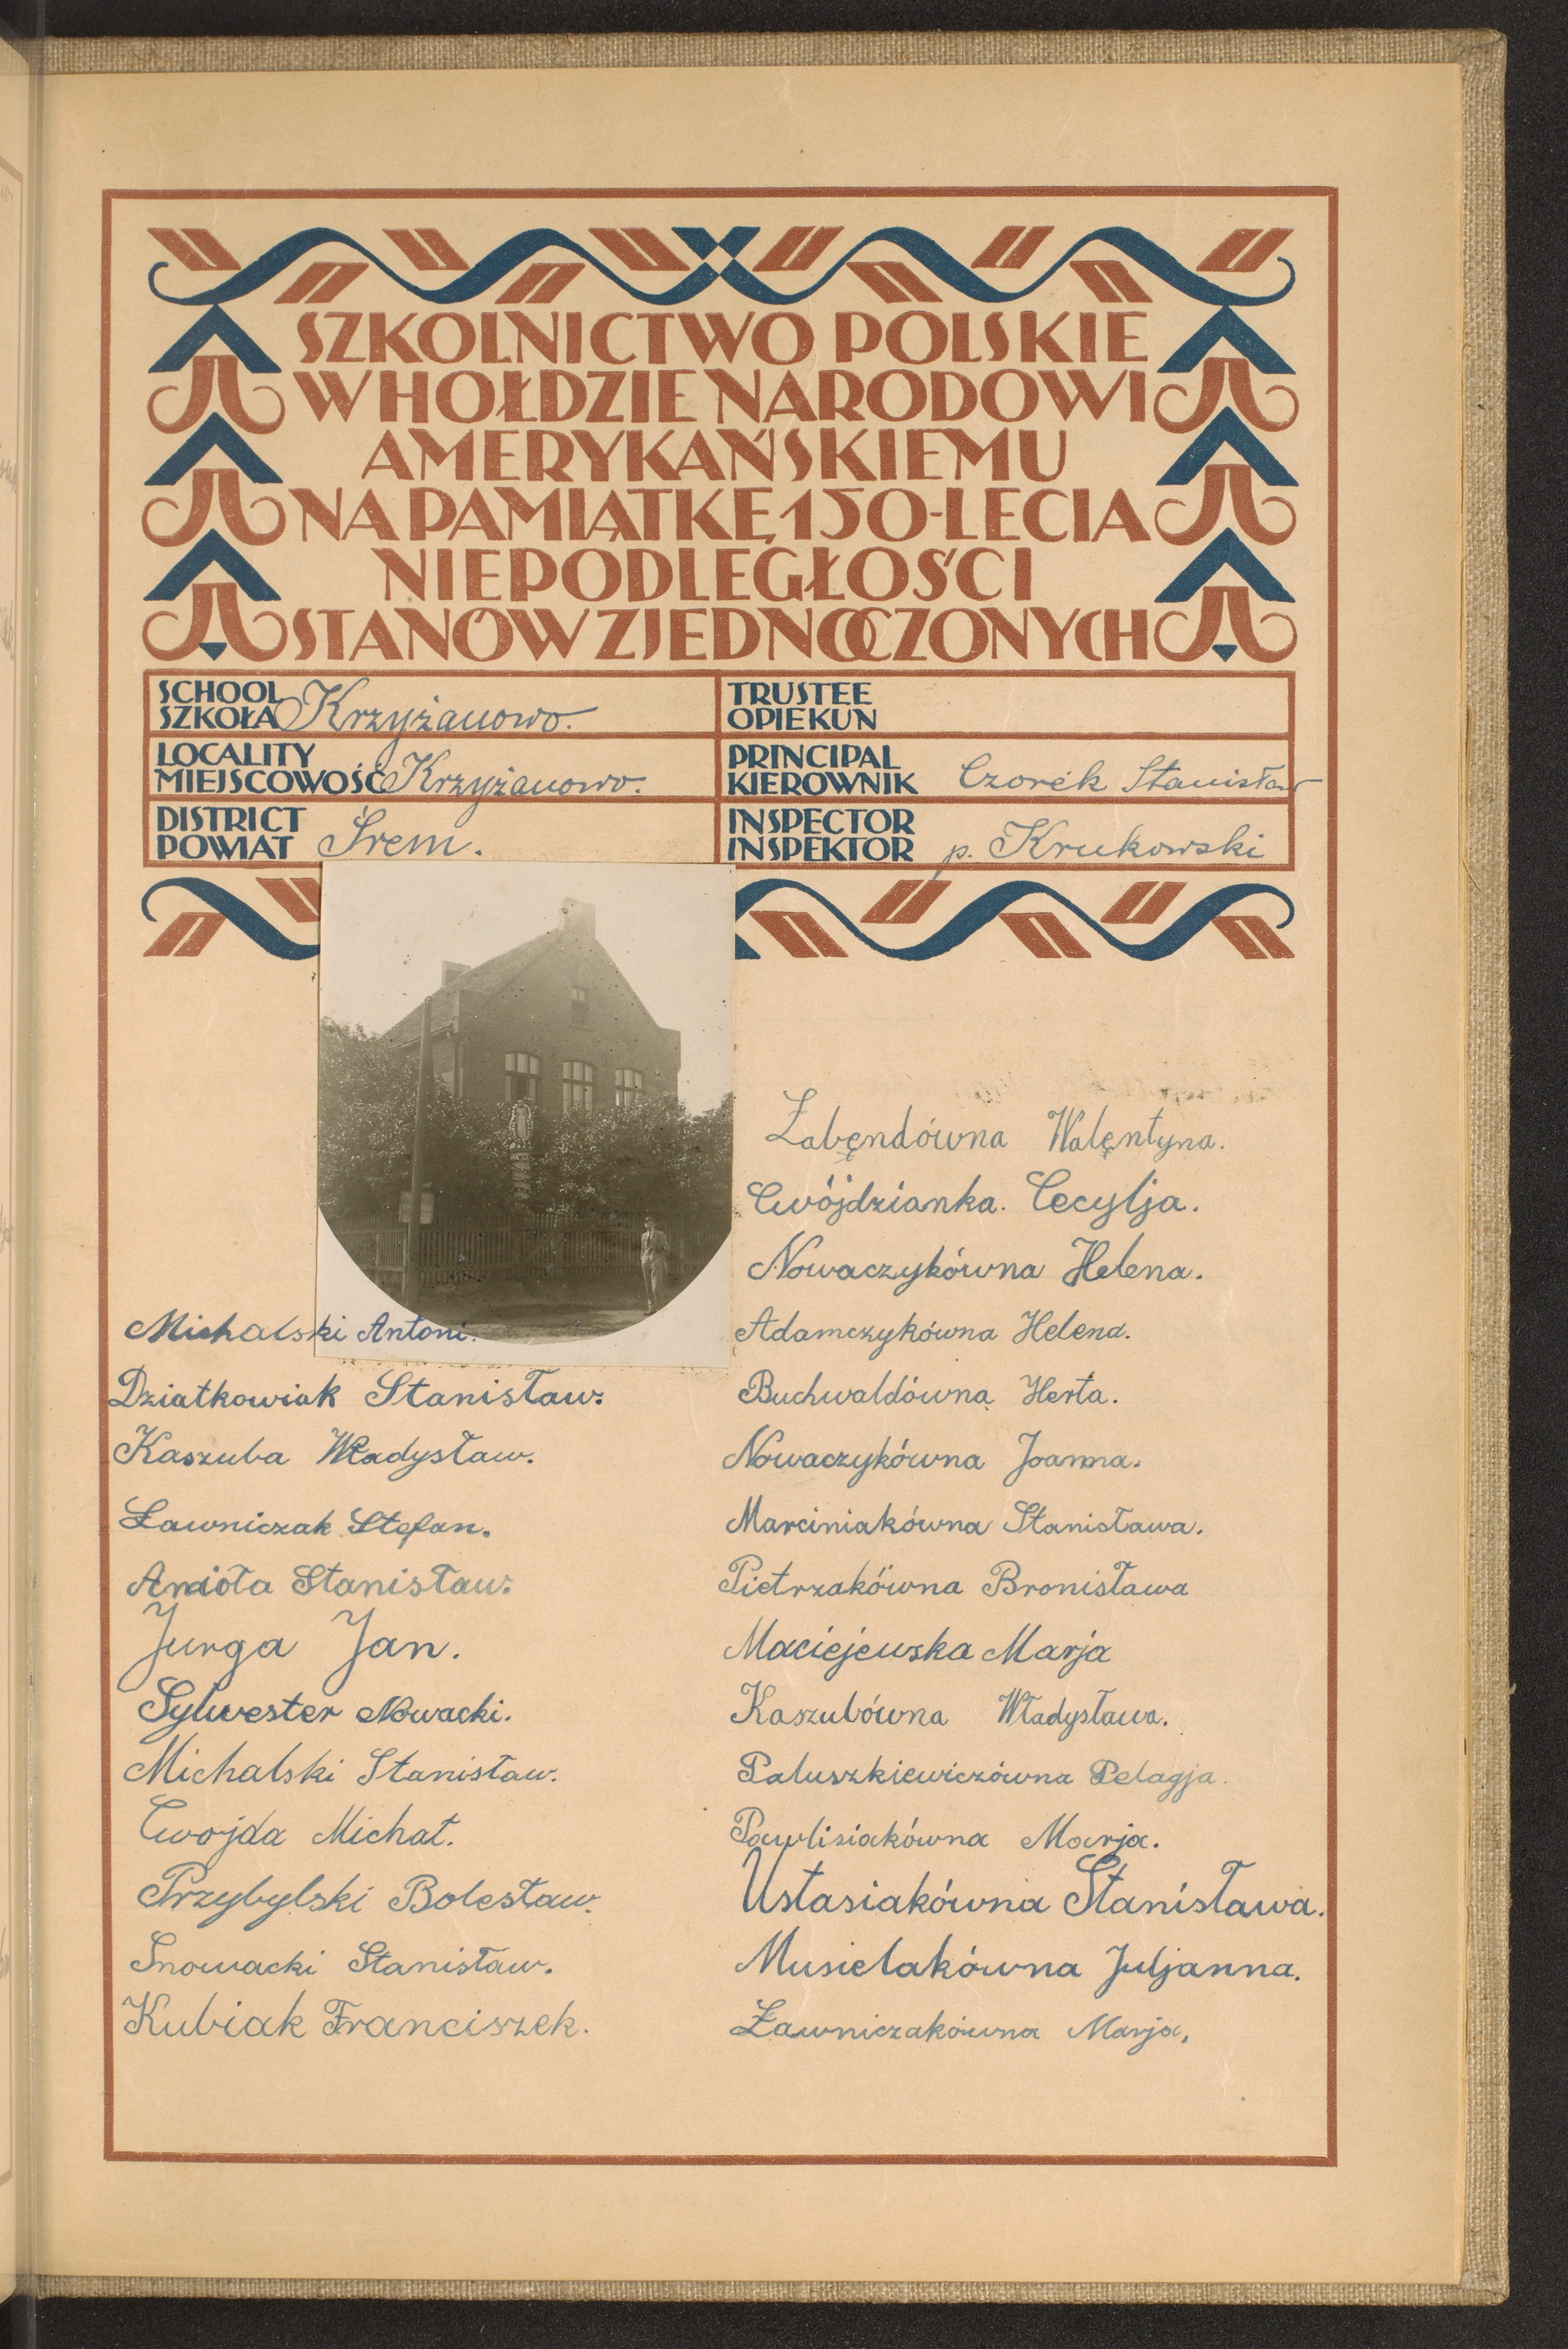 SZKOLNICTWO POLSKIE
W HOŁDZIE NARODOWI
AMERYKAŃSKIEMU
NA PAMIĄTKĘ 150-LECIA
NIEPODLEGŁOŚCI
STANÓW ZJEDNOCZONYCH
SCHOOL
SZKOŁA Krzyżanowo.
TRUSTEE
OPIEKUN
LOCALITY
MIEJSCOWOŚĆ Krzyżanowo.
PRINCIPAL
KIEROWNIK Czorek Stanisław
DISTRICT
POWIAT Śrem.
INSPECTOR
INSPEKTOR p. Krukowski
Michalski Antoni.
Dziatkowiak Stanisław.
Kaszuba Władysław.
Ławniczak Stefan.
Anioła Stanisław.
Jurga Jan.
Sylwester Nowacki.
Michalski Stanisław.
Cwojda Michał.
Przybylski Bolesław.
Snowacki Stanisław.
Kubiak Franciszek.
Żabęndówna Walęntyna.
Cwójdzianka. Cecylja.
Nowaczykówna Helena.
Adamczykówna Helena.
Buchwaldówna Herta.
Nowaczykówna Joanna.
Marciniakówna Stanisława.
Pietrzakówna Bronisława
Maciejewska Marja
Kaszubówna Władysława.
Paluszkiewiczówna Pelagja.
Pawlisiakówna Marja.
Ustasiakówna Stanisława.
Musielakówna Juljanna.
Ławniczakówna Marja,